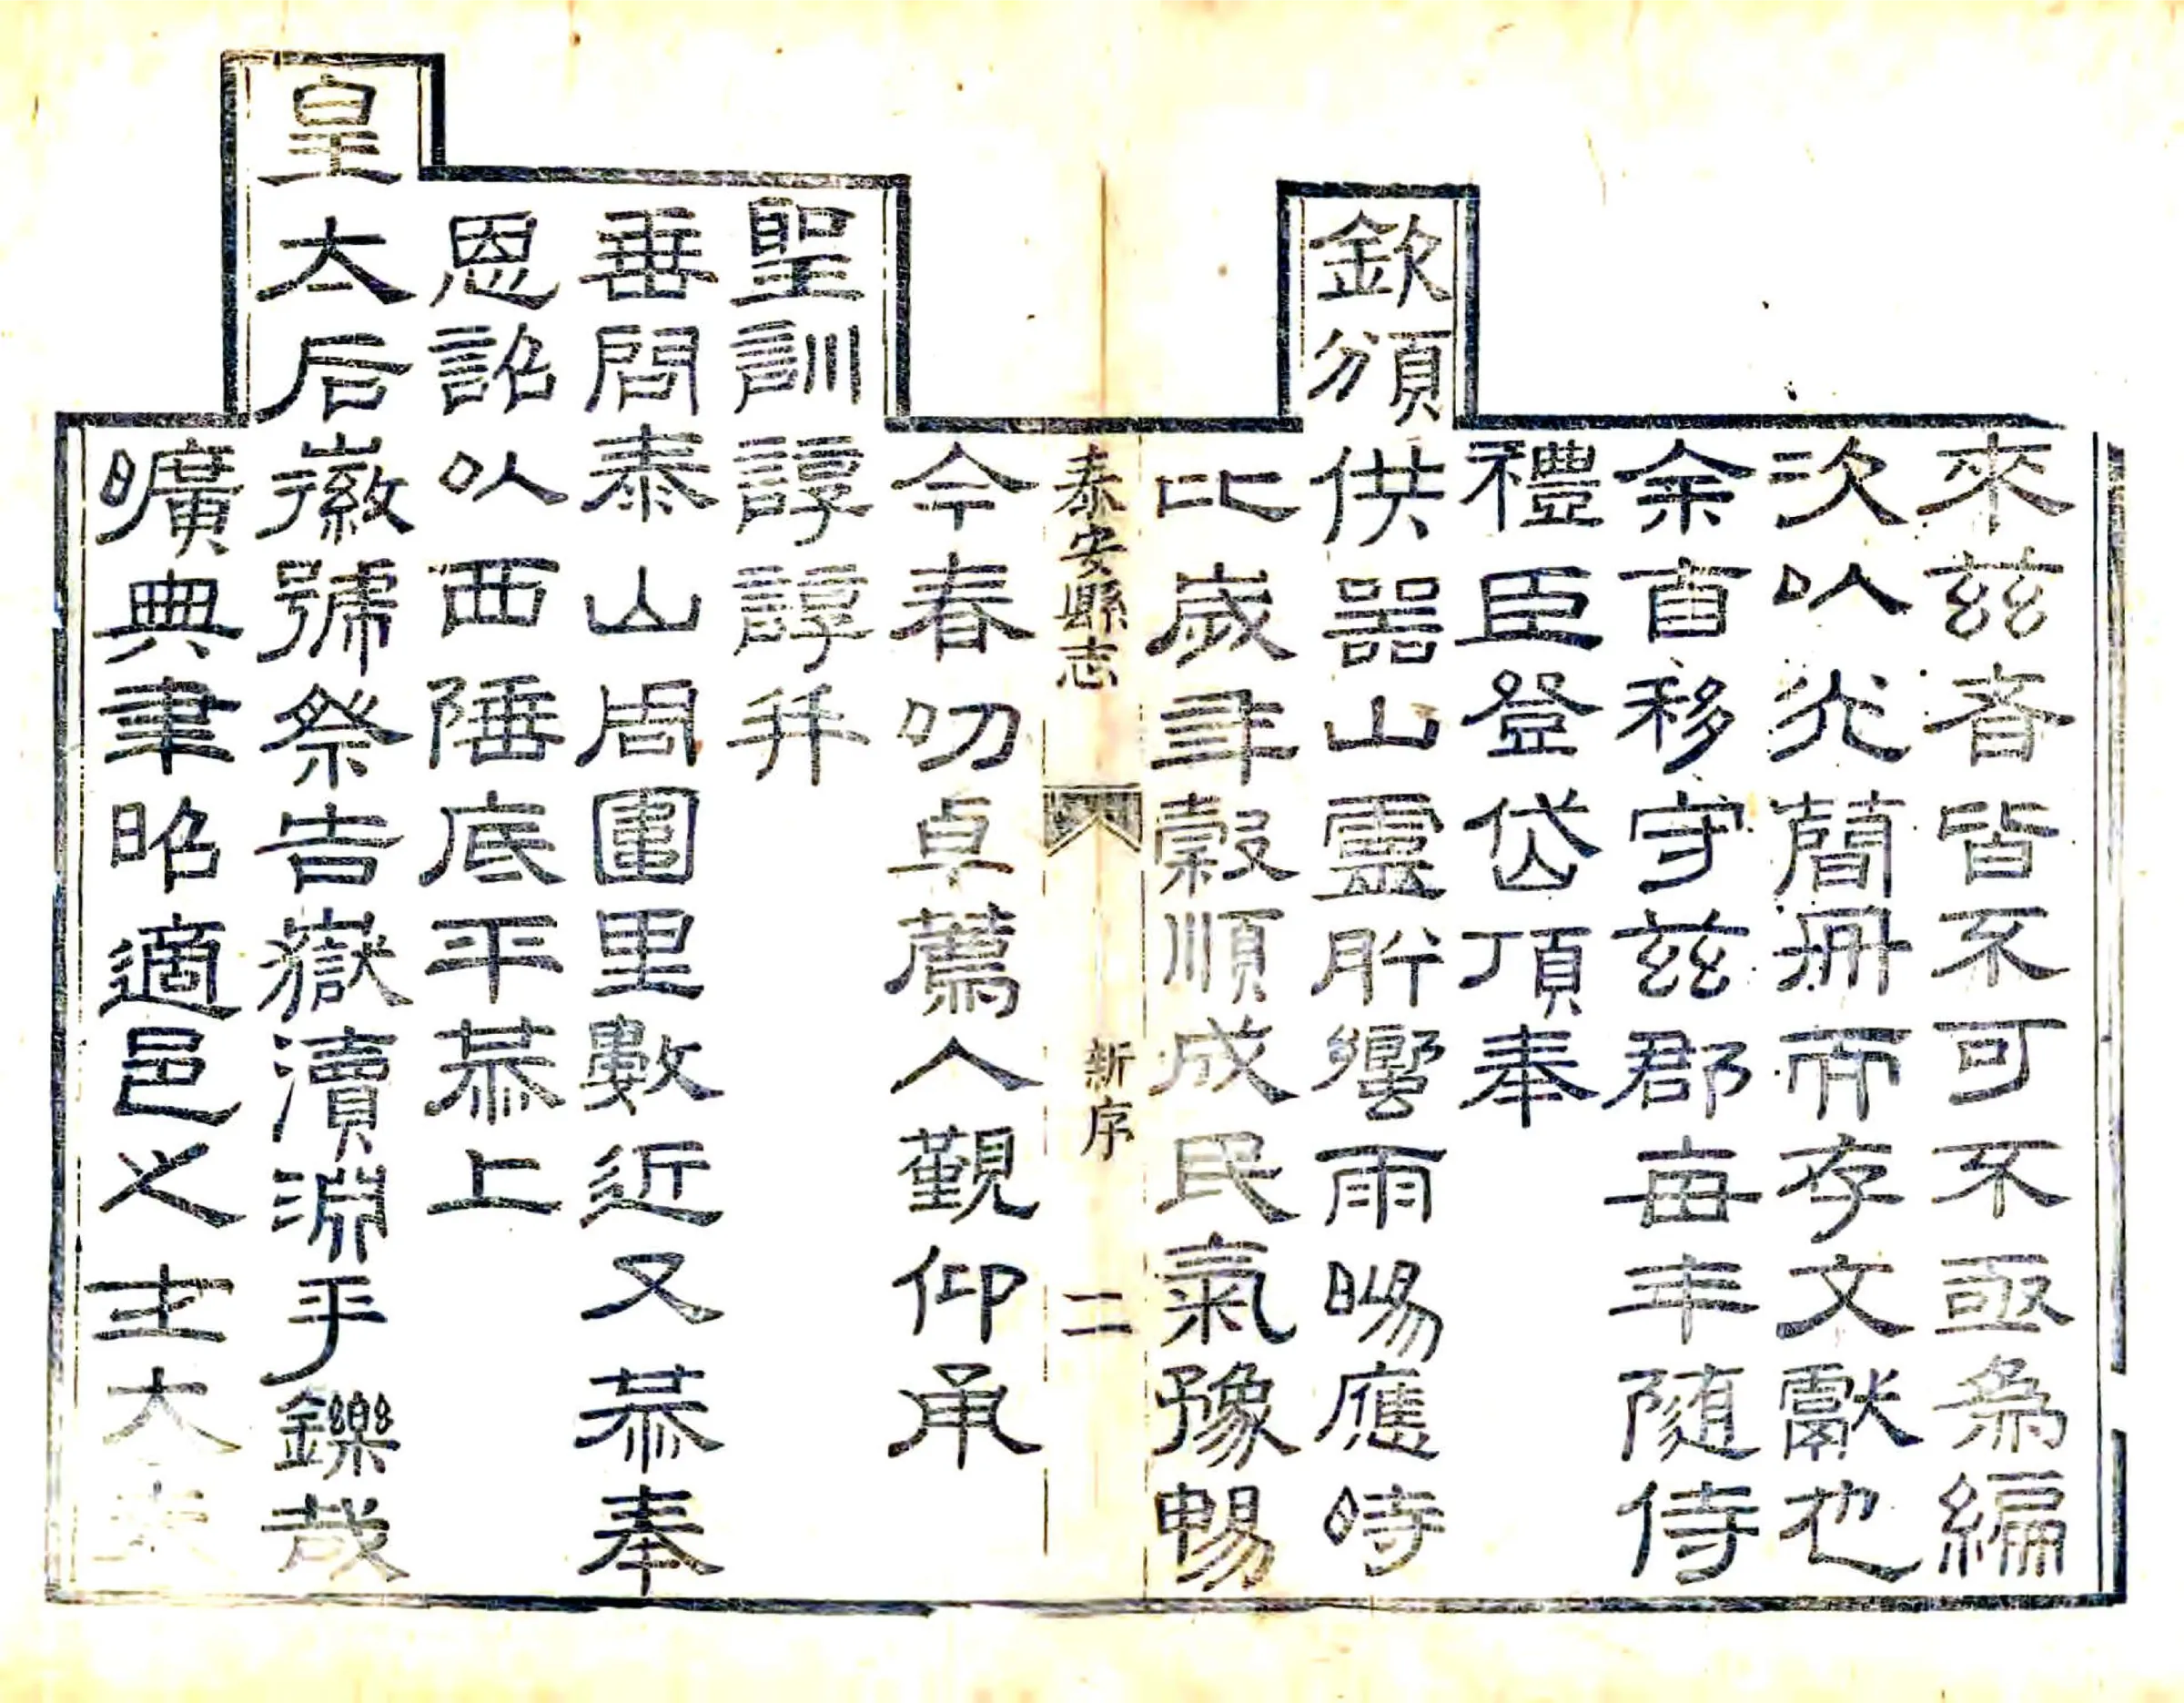 來茲者皆不可不亟為編
次以光簡冊而存文獻也
余自移守茲郡每年隨侍
禮臣登岱頂奉
欽頒供器山靈肸蠁雨暘應時
比歲年穀順成民氣豫暢
泰安縣志 新序 二
今春叨卓薦入覲仰承
聖訓諄諄并
垂問泰山周圍里數近又恭奉
恩詔以西陲底平恭上
皇太后徽號祭告嶽瀆淵乎鑠哉
曠典聿昭適邑之主大夫